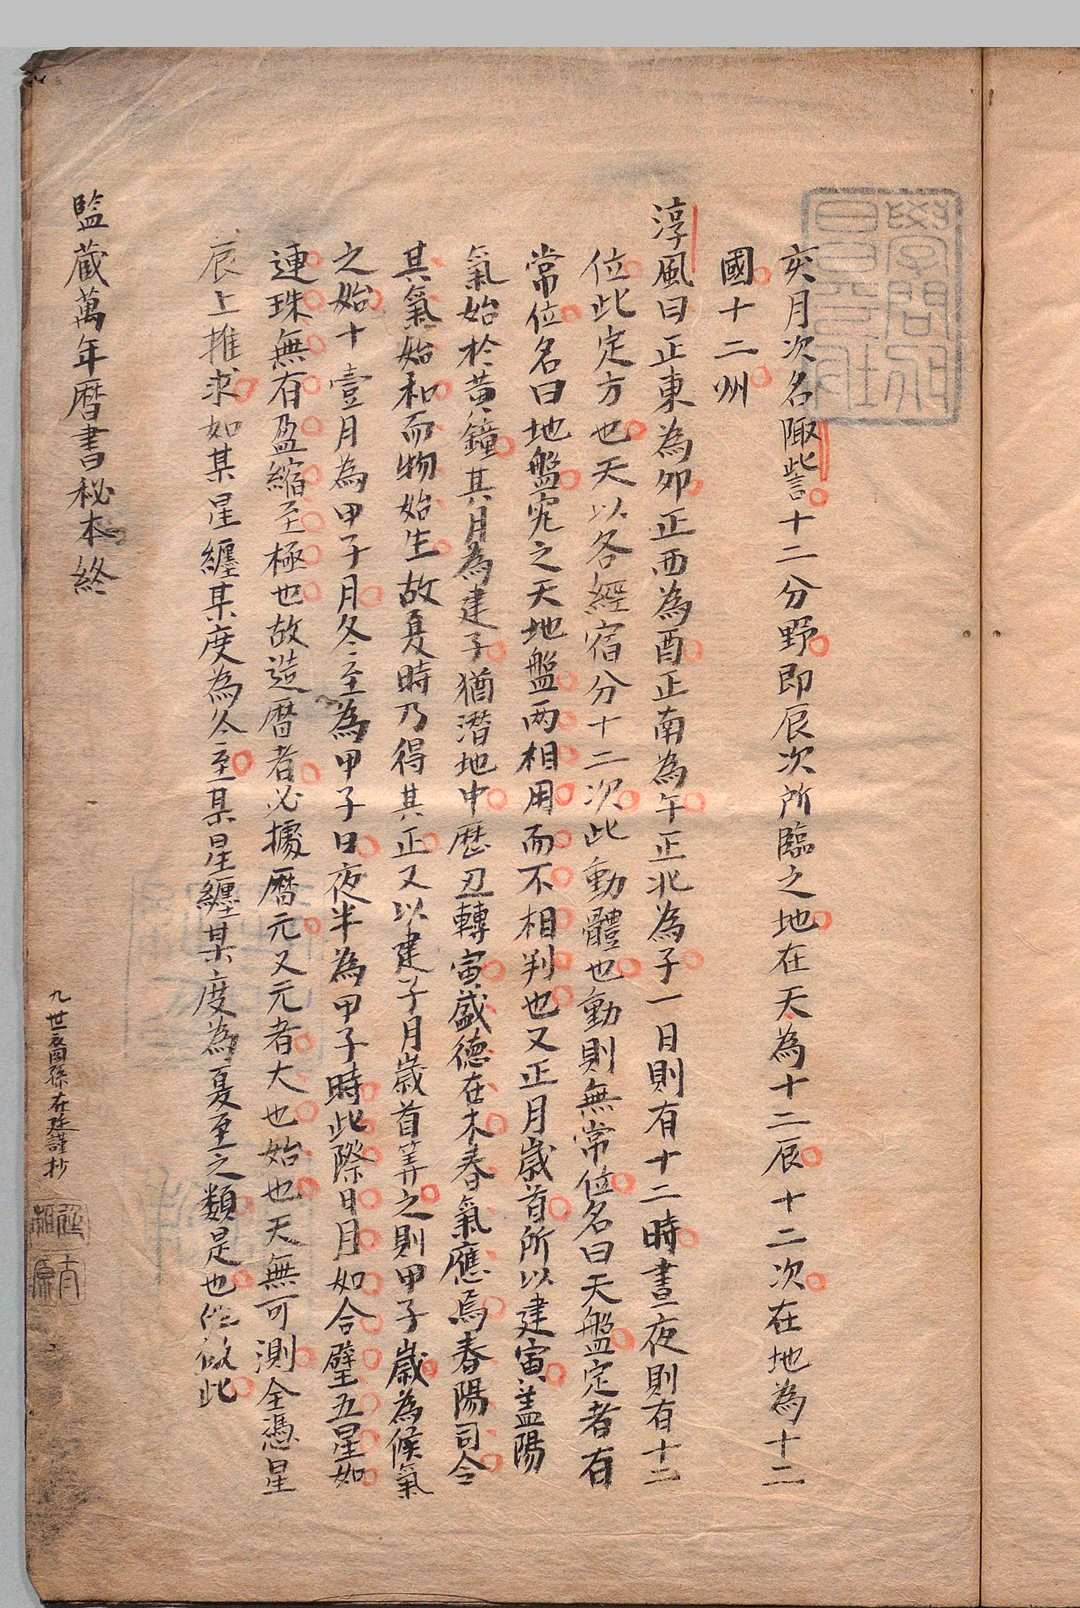 亥月次名陬訾十二分野即辰次所臨之地在天為十二辰十二次在地為十二
國十二州
淳風曰正東為夘正西為酉正南為午正北為子一日則有十二時晝夜則有十二
位此定方也天以各經宿分十二次此動體也動則無常位名曰天盤定者有
常位名曰地盤究之天地盤両相用而不相判也又正月歲首所以建寅盖陽
氣始於黄鐘其月為建子猶潛地中歷丑轉寅盛德在木春氣應焉春陽司令
其氣始和而物始生故夏時乃得其正又以建子月歲首筭之則甲子歲為候氣
之始十壹月為甲子月冬至為甲子日夜半為甲子時此際日月如合璧五星如
連珠無有盈縮至極也故造暦者必據暦元又元者大也始也天無可測全憑星
辰上推求如某星纏某度為冬至某星纏某度為夏至之類是也他倣此
監蔵萬年暦書秘本終
九世 孫在 謹抄